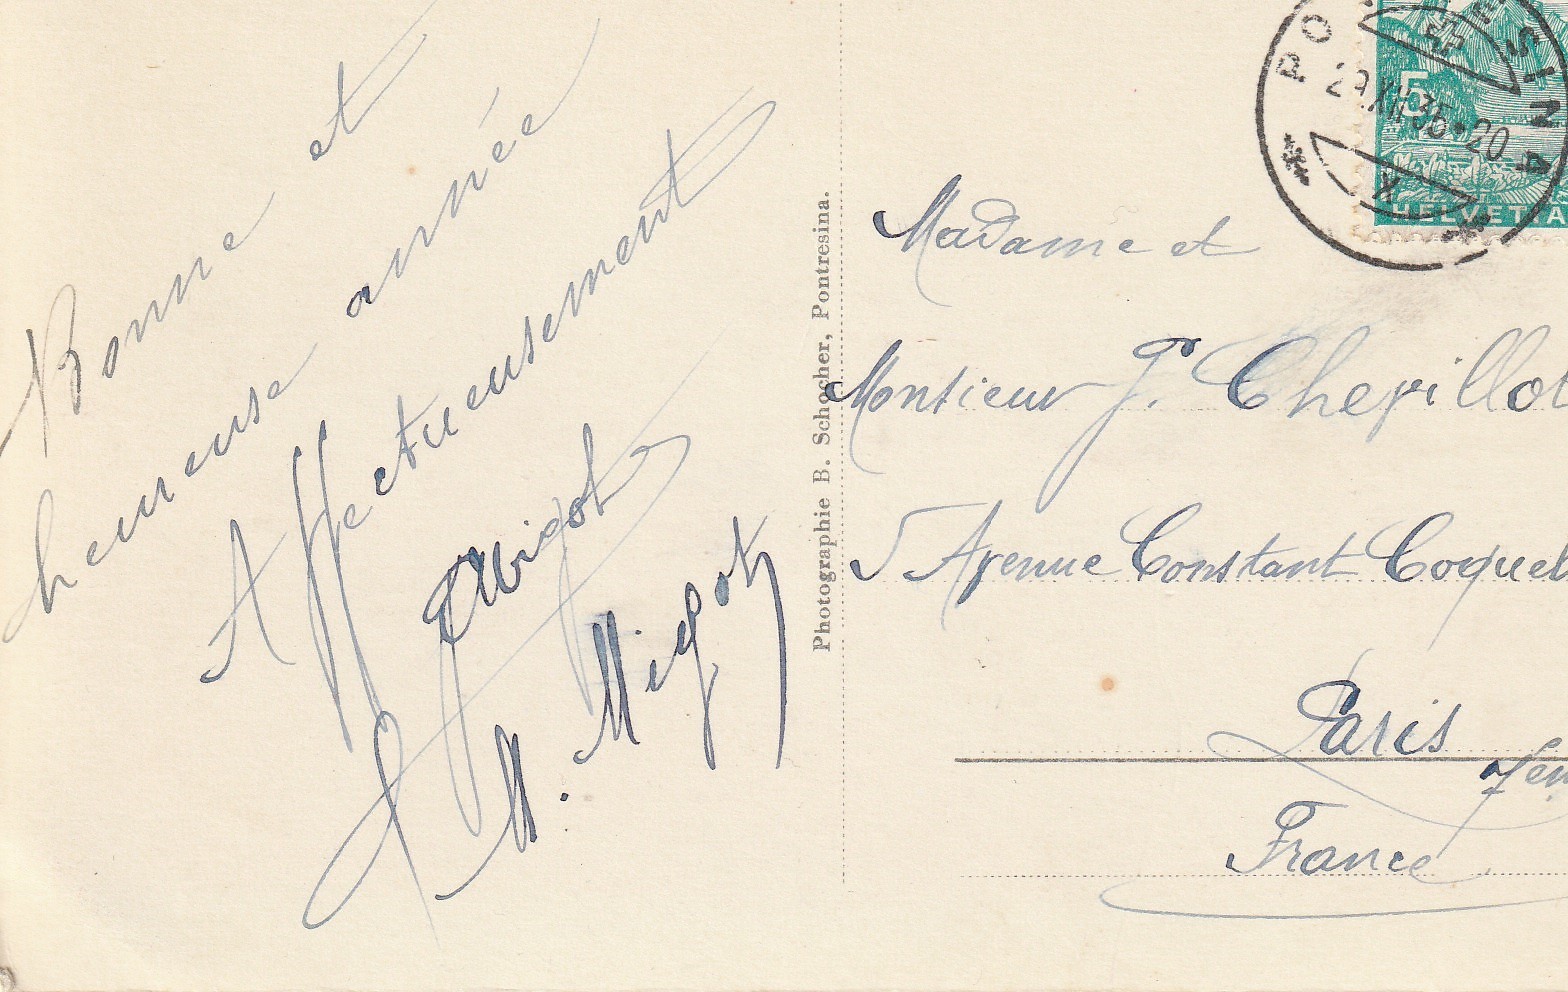 Bonne et
heureuse année
Affectueusement
Migot
M. Migot
Photographie B. Schocher, Pontresina.
PO SINA
29.XII.35·20
5
HELVETIA
Madame et
Monsieur J. Chevillot
5 Avenue Constant Coquel
Paris
7em
France